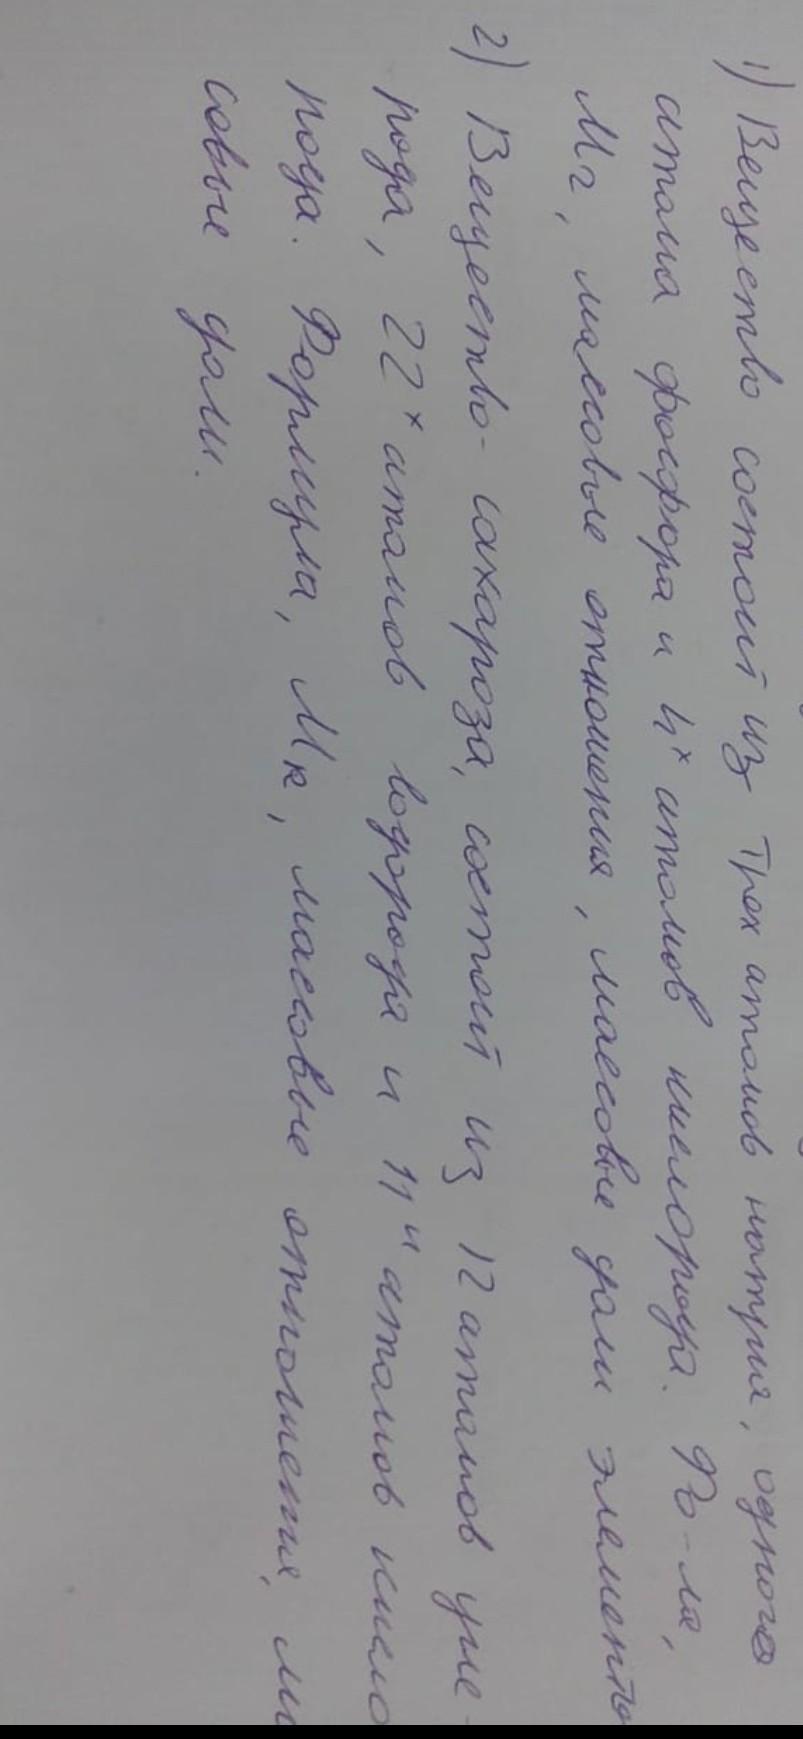 1) Вещество состоит из трех атомов натрия, одного
атома фосфора и 4х атомов кислорода. Ф-ла,
Mr, массовые отношения, массовые доли элементо
2) Вещество - сахароза, состоит из 12 атомов угле-
рода, 22х атомов водорода и 11и атомов кисло
рода. Формула, Mr, массовые отношения, ма
совые доли.